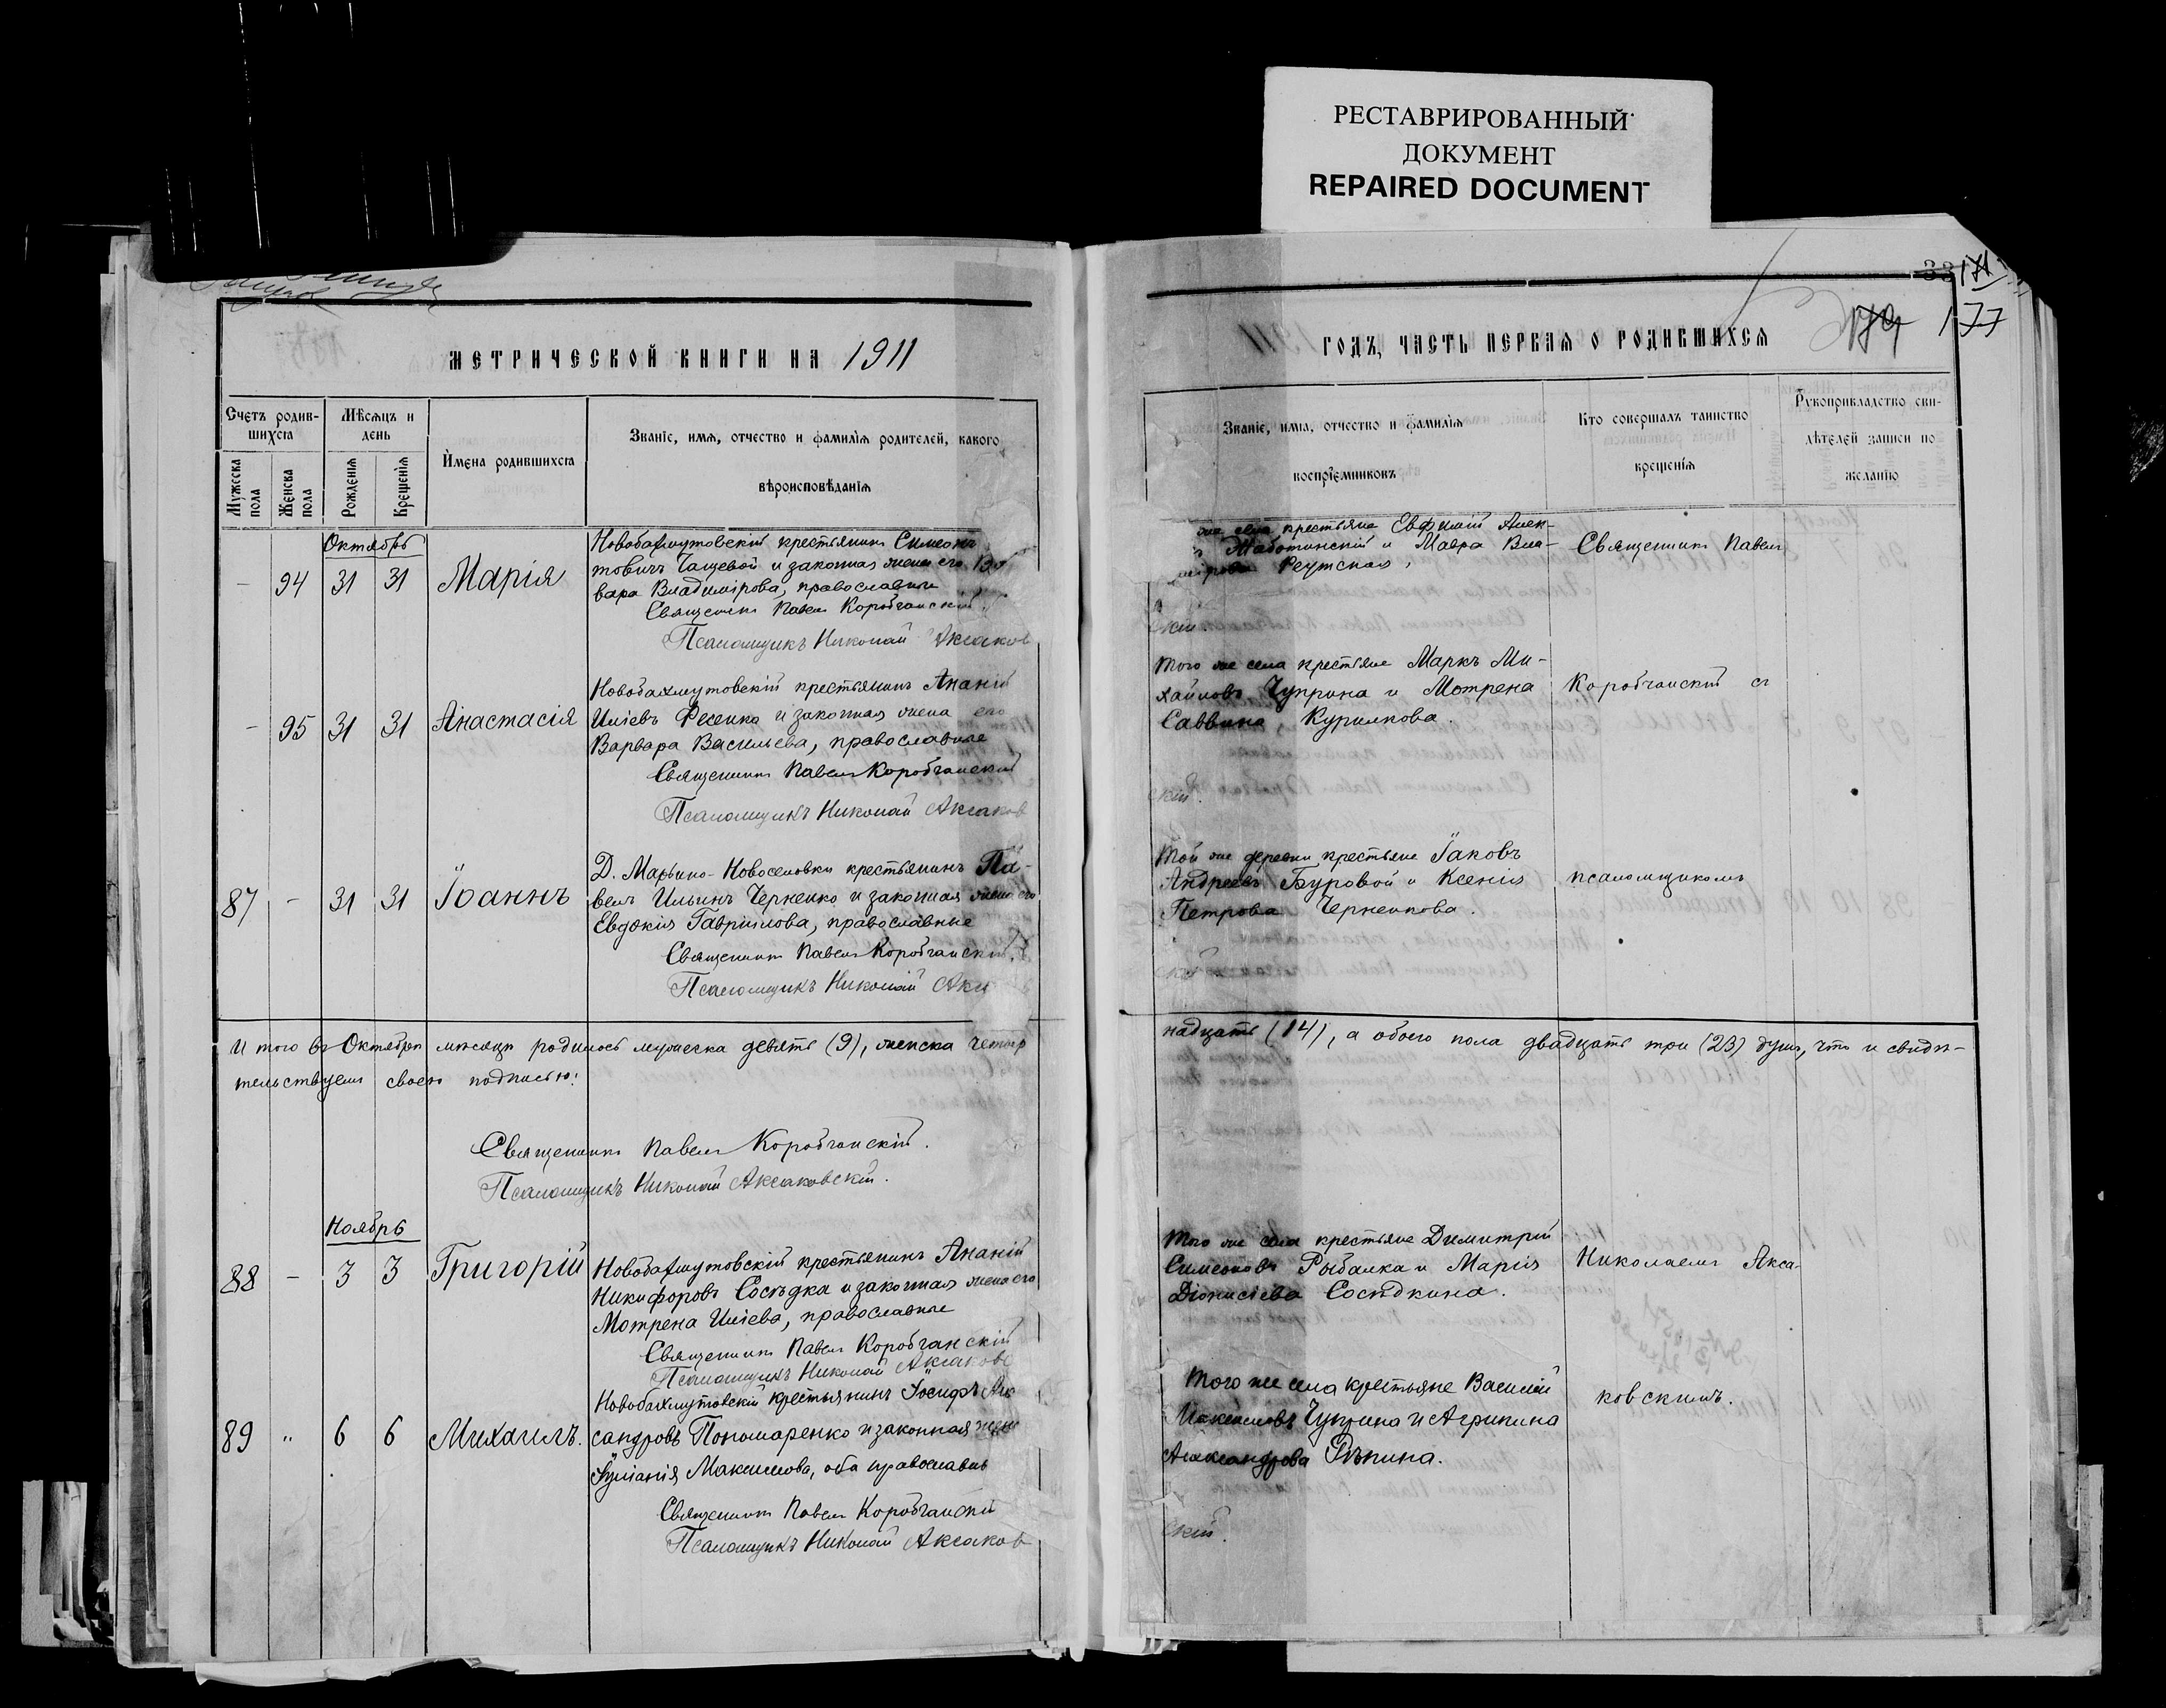 РЕСТАВРИРОВАННЫЙ
ДОКУМЕНТ
REPAIRED DOCUMENT
177
МЕТРИЧЕСКОЙ КНИГИ НА 1911
ГОДЪ, ЧАСТЬ ПЕРВАЯ О РОДИВШИХСЯ
Счетъ родив-
шихся
Мужеска пола
Женска пола
Мѣсяцъ и
день
Рожденія
Крещенія
Имена родившихся
Званіе, имя, отчество и фамилія родителей, какого
вѣроисповѣданія
Званіе, имя, отчество и фамилія
воспріемниковъ
Кто совершалъ таинство
крещенія
Рукоприкладство сви-
дѣтелей записи по
желанію
Октябрь
- 94 31 31 Марія
Новобахмутовскій крестьянинъ Симеонъ
товичъ Тащевой и законная жена его
вара Владимірова, православные
Священникъ Павелъ Коробчанскій
Псаломщикъ Николай Аксаков
же села крестьяне Евфимій Алек-
Маботинскій и Мавра Вла-
Реутская,
скій.
Священникъ Павелъ
- 95 31 31 Анастасія
Новобахмутовскій крестьянинъ Ананій
Иліевъ Фесенко и законная жена его
Варвара Васильева, православные
Священникъ Павелъ Коробчанскій
Псаломщикъ Николай Аксаков
Того же села крестьяне Маркъ Ми-
хайловъ Чуприна и Мотрена
Саввина Курилкова.
скій.
Коробчанскій съ
87 - 31 31 Іоаннъ
Д. Марьино-Новоселовки крестьянинъ Па-
велъ Ильинъ Черненко и законная жена его
Евдокія Гавриилова, православные
Священникъ Павелъ Коробчанскій.
Псаломщикъ Николай Акс
Той же деревни крестьяне Іаковъ
Андреевъ Буровой и Ксенія
Петрова Черненкова.
скій
псаломщикомъ
И того въ Октябрѣ мѣсяцѣ родилось мужеска девять (9), женска четыр
надцать (14), а обоего пола двадцать три (23) душъ, что и свидѣ-
тельствуемъ своею подписью:
Священникъ Павелъ Коробчанскій.
Псаломщикъ Николай Аксаковскій.
Ноябрь
88 - 3 3 Григорій
Новобахмутовскій крестьянинъ Ананій
Никифоровъ Сосѣдка и законная жена его
Мотрена Иліева, православные
Священникъ Павелъ Коробчанскій
Псаломщикъ Николай Аксаковс
Того же села крестьяне Димитрій
Симеоновъ Рыбалка и Марія
Діонисіева Сосѣдкина.
Николаемъ Акса-
89 " 6 6 Михаилъ.
Новобахмутовскій крестьянинъ Іосифъ Алек
сандровъ Пономаренко и законная жена
Іуліанія Максимова, оба православные
Священникъ Павелъ Коробчанскій
Псаломщикъ Николай Аксаков
Того же села крестьяне Василій
Чуприна и Агрипина
Александрова Рѣпина.
скій.
ковскимъ.